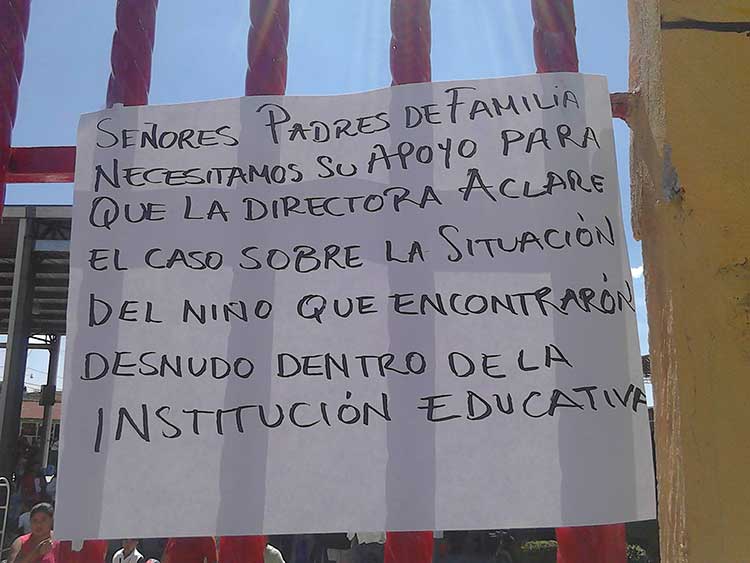 SEÑORES PADRES DE FAMILIA
NECESITAMOS SU APOYO PARA
QUE LA DIRECTORA ACLARE
EL CASO SOBRE LA SITUACIÓN
DEL NIÑO QUE ENCONTRARÓN
DESNUDO DENTRO DE LA
INSTITUCIÓN EDUCATIVA